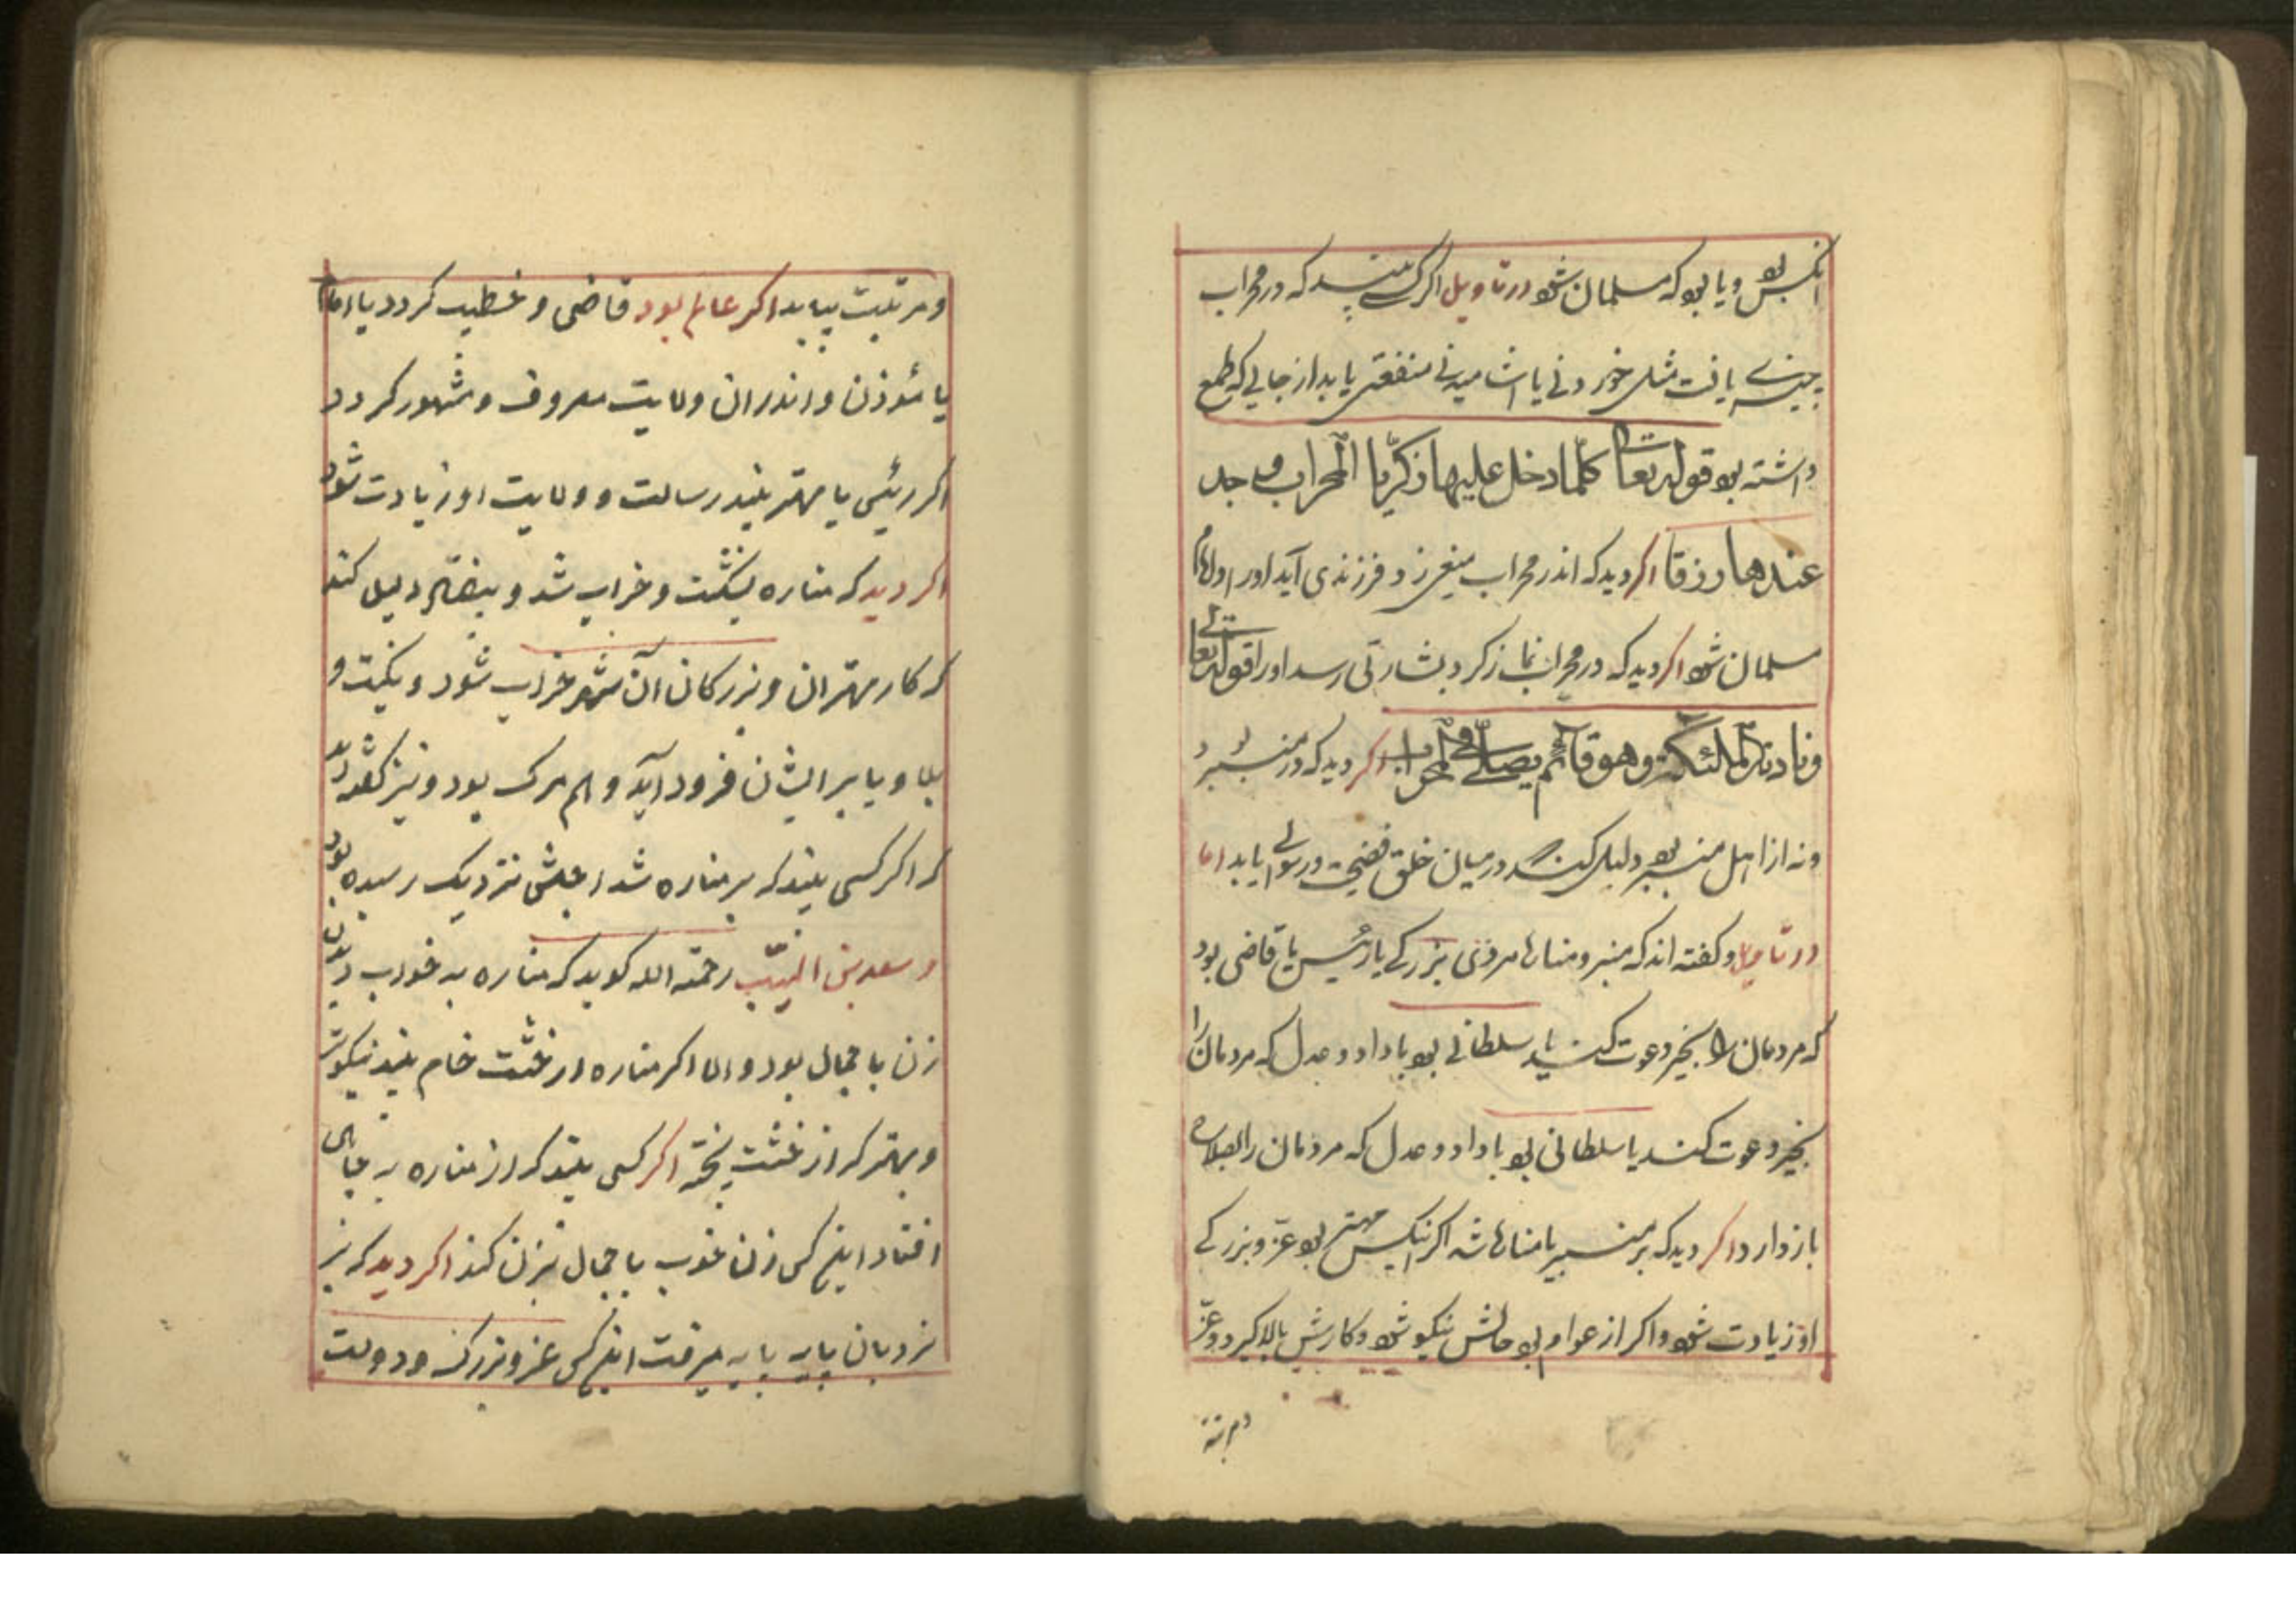 انکس بود و یا بود که مسلمان شود در تاویل اکر کسی بیند که در محراب
چیزی یافت مثل خوردنی یا اشامیدنی منفعتی یابد از جایی که طمع
داشته بود قوله تعالی کلما دخل علیها زکریا المحراب وجد
عندها رزقا اکر دید که اندر محراب میغیزد فرزندی آید اورا و
مسلمان شود اکر دید که در محراب نماز کرد بشارتی رسد اورا قوله تعالی
فنادته الملئکة وهو قائم یصلی فی المحراب اکر دید که در منبر بود
ونه از اهل منبر بود دلیل کند در میان خلق فضیحت و رسوایی یابد اما
در تاویل و کفته اند که منبر و مناره مردی بزرکی یا رئیس یا قاضی بود
که مردمان را بخیر دعوت کند یا سلطانی بود با داد و عدل که مردمان را
بخیر دعوت کند یا سلطانی بود با داد و عدل که مردمان را بصلاح
باز دارد اکر دید که بر منبر یا مناره شد اکر انکس مهتر بود عز و بزرکی
او زیادت شود و اکر از عوام بود حالش نیکو شود و کارش بالا کیرد و عز
ومرتبت
ومرتبت بیابد اکر عالم بود قاضی و خطیب کردد یا امام
یا مؤذن و اندر ان ولایت معروف و مشهور کردد
اکر رئیسی یا مهتر بیند رسالت و ولایت او زیادت شود
اکر دید که مناره بشکست و خراب شد و بیفتاد دلیل کند
که کار مهتران و بزرکان آن شهر خراب شود و نکبت و
بلا و یا بر ایشان فرود آید و هم مرک بود و نیز کفته اند
که اکر کسی بیند که بر مناره شد اجلش نزدیک رسیده بود
و سعد بن المسیب رحمة الله کوید که مناره به خواب دیدن
زن با جمال بود و اما اکر مناره از خشت خام بیند نیکوتر
و بهتر که از خشت پخته اکر کسی بیند که از مناره به جای
افتاد اینکس زن خوب با جمال بزن کند اکر دید که بر
نردبان پایه پایه میرفت اینکس عز و بزرک و دولت